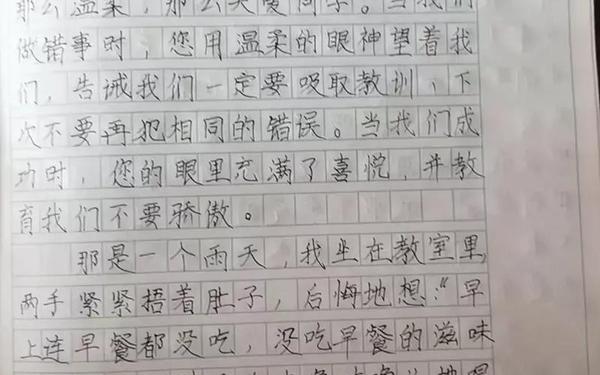 那么温柔，那么关爱同学。当我们
做错事时，您用温柔的眼神望着我
们，告诫我们一定要吸取教训，下
次不要再犯相同的错误。当我们成
功时，您的眼里充满了喜悦，并教
育我们不要骄傲。
那是一个雨天，我坐在教室里，
两手紧紧捂着肚子，后悔地想：“早
上连早餐都没吃，没吃早餐的滋味